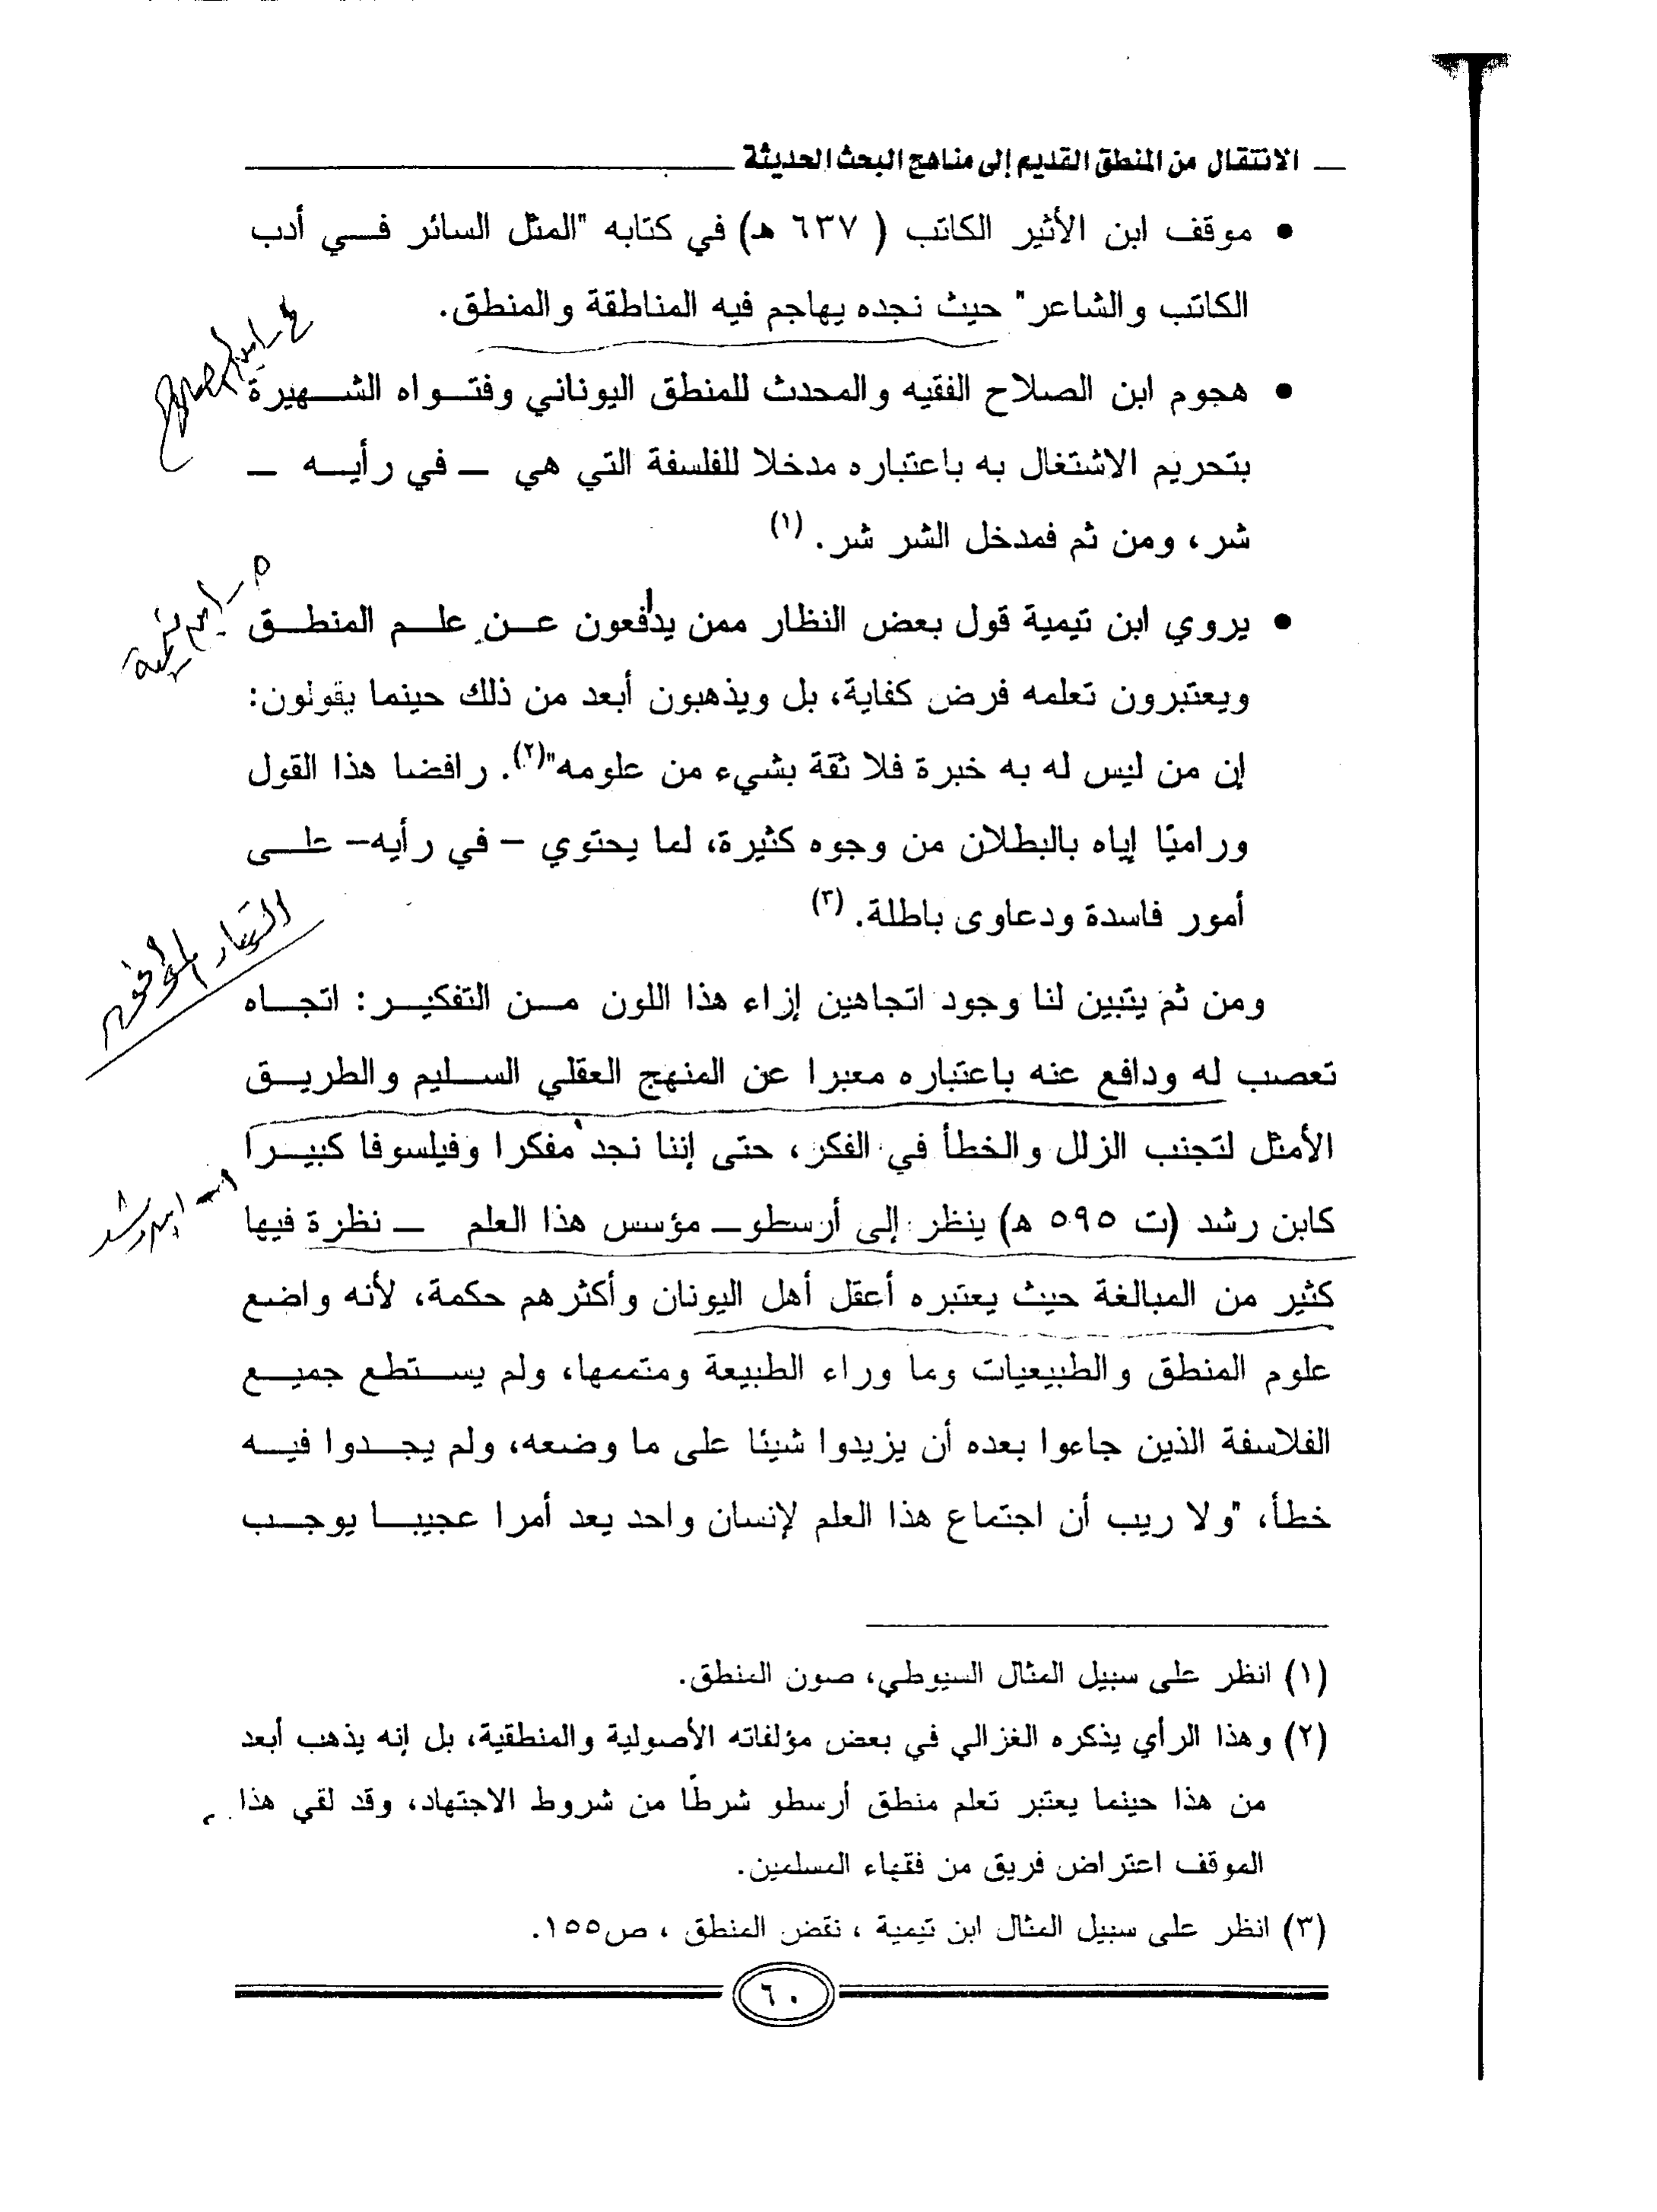 الانتقال من المنطق القديم إلى مناهج البحث الحديثة
• موقف ابن الأثير الكاتب ( ٦٣٧ هـ) في كتابه "المثل السائر فـي أدب
الكاتب والشاعر" حيث نجده يهاجم فيه المناطقة والمنطق.
٤ـ ابن الصلاح
• هجوم ابن الصلاح الفقيه والمحدث للمنطق اليوناني وفتـواه الشـهيرة
بتحريم الاشتغال به باعتباره مدخلا للفلسفة التي هي ـ في رأيـه ـ
شر، ومن ثم فمدخل الشر شر. (١)
٥ـ ابن تيمية
• يروي ابن تيمية قول بعض النظار ممن يدافعون عـن علـم المنطـق
ويعتبرون تعلمه فرض كفاية، بل ويذهبون أبعد من ذلك حينما يقولون:
إن من ليس له به خبرة فلا ثقة بشيء من علومه"(٢). رافضا هذا القول
وراميًا إياه بالبطلان من وجوه كثيرة، لما يحتوي - في رأيه- علـى
أمور فاسدة ودعاوى باطلة. (٣)
ومن ثم يتبين لنا وجود اتجاهين إزاء هذا اللون مـن التفكيـر: اتجـاه
تعصب له ودافع عنه باعتباره معبرا عن المنهج العقلي السـليم والطريـق
الأمثل لتجنب الزلل والخطأ في الفكر، حتى إننا نجد مفكرا وفيلسوفا كبيـرا
١ـ ابن رشد
كابن رشد (ت ٥٩٥ هـ) ينظر إلى أرسطوـ مؤسس هذا العلم ـ نظرة فيها
كثير من المبالغة حيث يعتبره أعقل أهل اليونان وأكثرهم حكمة، لأنه واضع
علوم المنطق والطبيعيات وما وراء الطبيعة ومتممها، ولم يسـتطع جميـع
الفلاسفة الذين جاءوا بعده أن يزيدوا شيئا على ما وضعه، ولم يجـدوا فيـه
خطأ، "ولا ريب أن اجتماع هذا العلم لإنسان واحد يعد أمرا عجيبـا يوجـب
(١) انظر على سبيل المثال السيوطي، صون المنطق.
(٢) وهذا الرأي يذكره الغزالي في بعض مؤلفاته الأصولية والمنطقية، بل إنه يذهب أبعد
من هذا حينما يعتبر تعلم منطق أرسطو شرطًا من شروط الاجتهاد، وقد لقي هذا
الموقف اعتراض فريق من فقهاء المسلمين.
(٣) انظر على سبيل المثال ابن تيمية ، نقض المنطق ، ص١٥٥.
٦٠